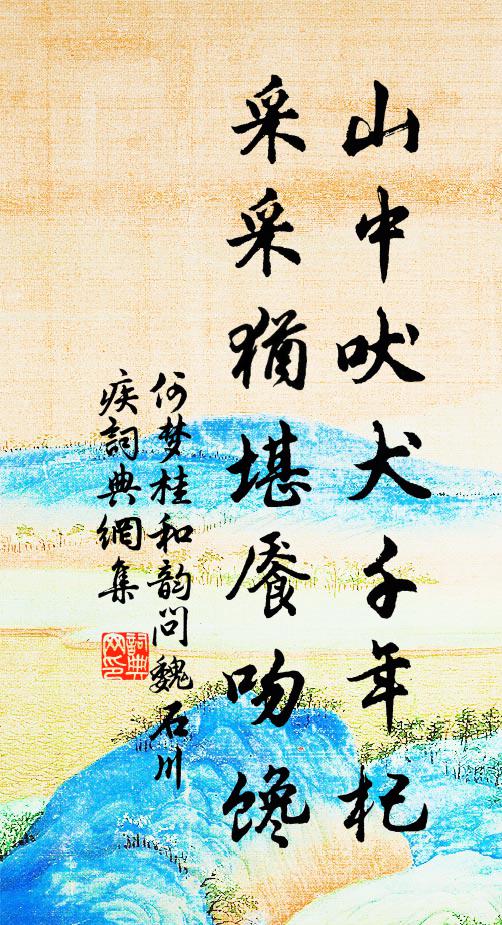 山中吠犬千年杞
采采犹堪餍吻馋
何梦桂和韵问魏石川
疾詞典網集
詞典